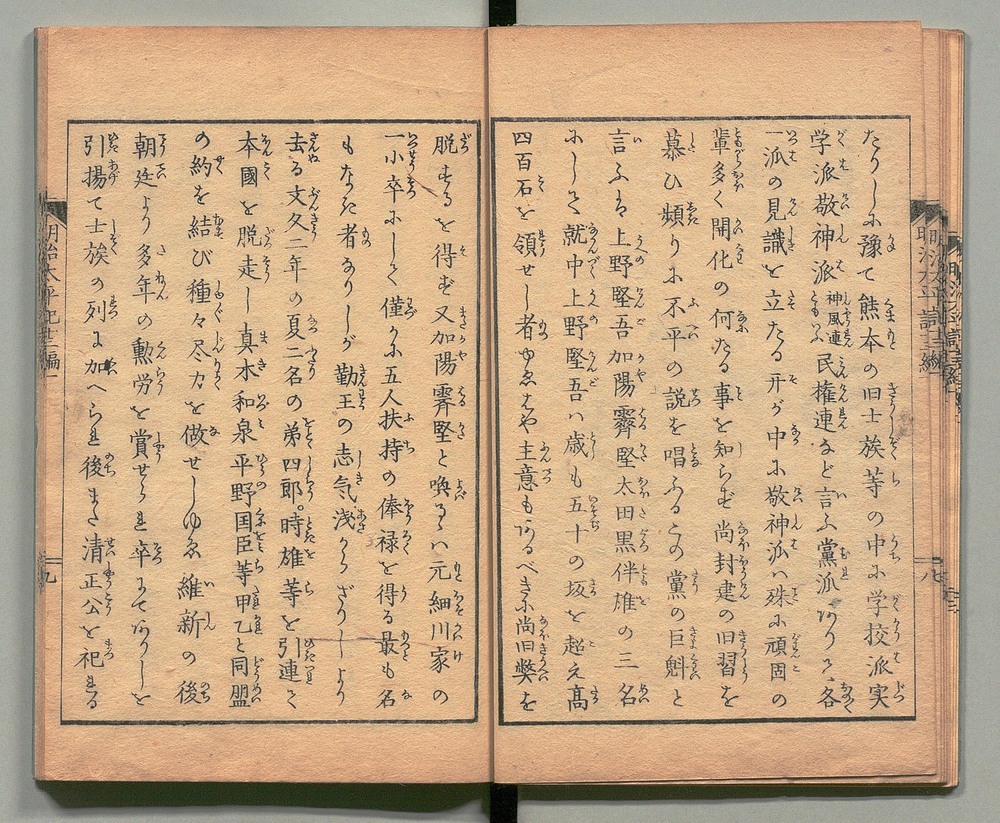 たりしに豫て熊本の旧士族等の中に学校派実
学派敬神派神風連ともいふ民権連など言ふ黨派ありて各
一派の見識を立たる开が中に敬神派ハ殊に頑固の
輩多く開化の何たる事を知らず尚封建の旧習を
慕ひ頻りに不平の説を唱ふるこの黨の巨魁と
言ふる上野堅吾加陽霽堅太田黒伴雄の三名
にして就中上野堅吾ハ歳も五十の坂を超え髙
四百石を領せし者ゆゑはや主意もあるべきに尚旧弊を
脱するを得ず又加陽霽堅と喚るハ元細川家の
一小卒にして僅かに五人扶持の俸禄を得る最も名
もなき者なりしが勤王の志気浅からざりしより
去る文久二年の夏二名の弟四郎。時雄等を引連て
本國を脱走し真木和泉平野国臣等甲乙と同盟
の約を結び種々尽力を做せしゆゑ維新の後
朝廷より多年の勲労を賞せられ卒にてありしを
引揚て士族の列に加へられ後また清正公を祀れる
明治太平記十二編
九
八